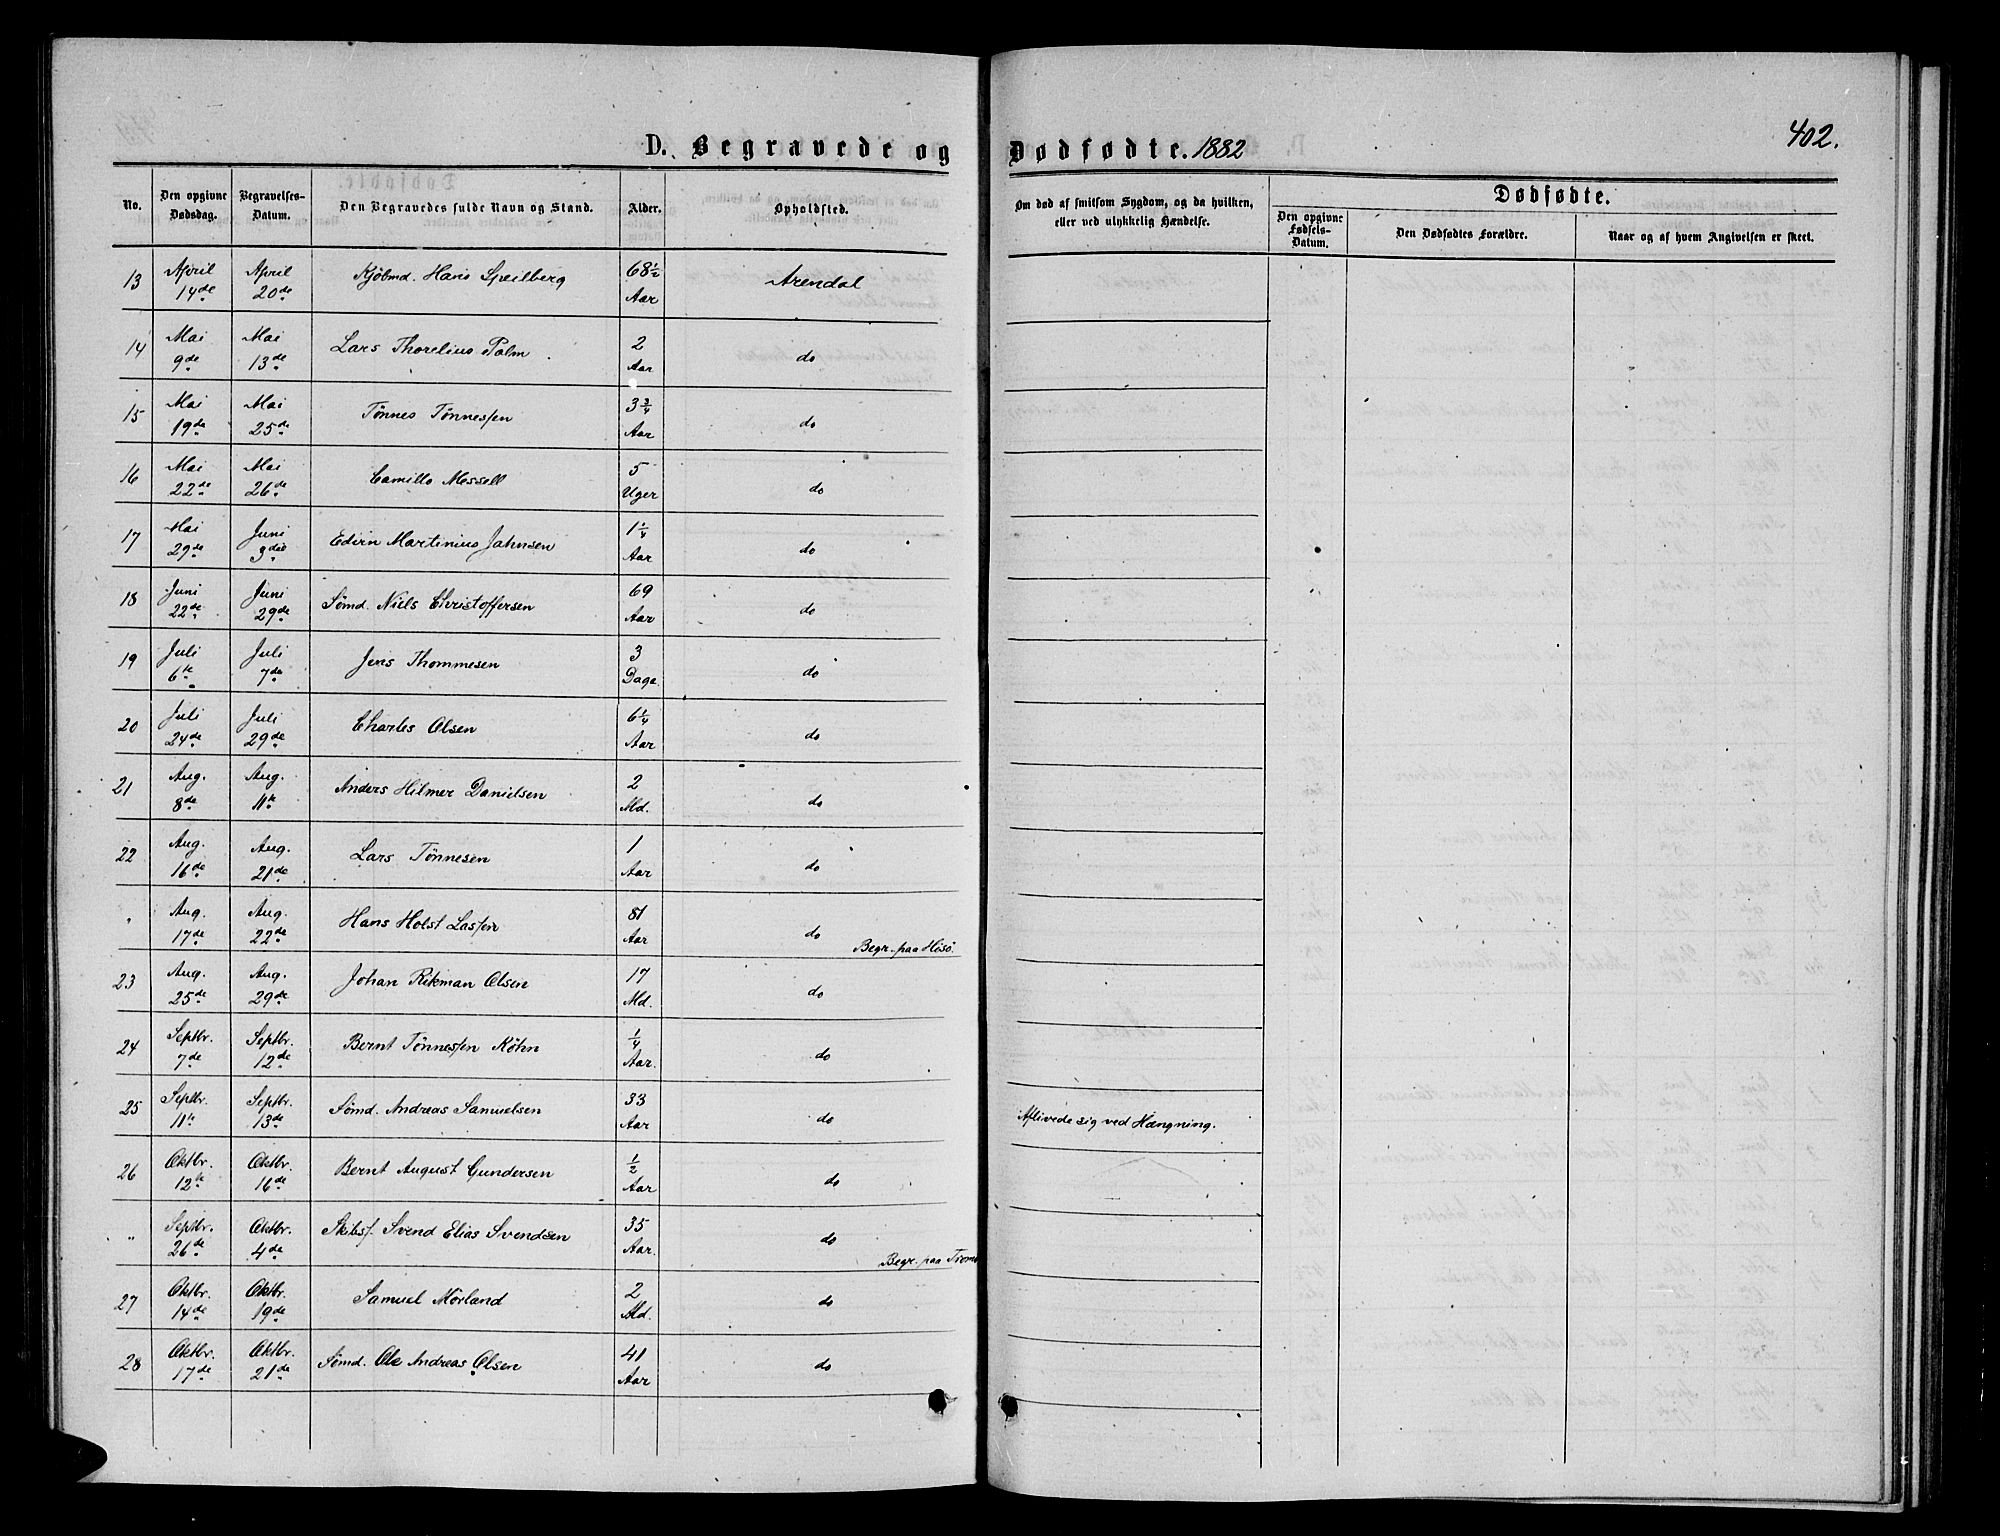 D. Begravede og Dødfødte. 1882
402.
No. | Den opgivne Dødsdag. | Begravelses-Datum. | Den Begravedes fulde Navn og Stand. | Alder. | Opholdsted. | Om død af smitsom Sygdom, og da hvilken, eller ved ulykkelig Hændelse. | Dødfødte.
Den opgivne Fødsels-Datum. | Den Dødfødtes Forældre. | Naar og af hvem Angivelsen er skeet.
13 | April 14de | April 20de | Kjøbmd. Hans Speilberg | 68½ Aar | Arendal
14 | Mai 9de | Mai 13de | Lars Thorelius Palm | 2 Aar | do
15 | Mai 19de | Mai 25de | Tønnes Tønnessen | 3¾ Aar | do
16 | Mai 22de | Mai 26de | Camillo Messell | 5 Uger | do
17 | Mai 29de | Juni 3die | Edvin Martinius Jahnsen | 1¼ Aar | do
18 | Juni 22de | Juni 29de | Sømd. Niels Christoffersen | 69 Aar | do
19 | Juli 6te | Juli 7de | Jens Thommesen | 3 Dage | do
20 | Juli 24de | Juli 29de | Charles Olsen | 6¼ Aar | do
21 | Aug. 8de | Aug. 11te | Anders Hilmer Danielsen | 2 Md. | do
22 | Aug. 16de | Aug. 21de | Lars Tønnesen | 1 Aar | do
" | Aug. 17de | Aug. 22de | Hans Holst Lassen | 81 Aar | do Begr. paa Hisø.
23 | Aug. 25de | Aug. 29de | Johan Rikman Olsen | 17 Md. | do
24 | Septbr. 7de | Septbr. 12de | Bernt Tønnessen Köhn | ¼ Aar. | do
25 | Septbr. 11te | Septbr. 13de | Sømd. Andreas Samuelsen | 33 Aar | do | Aflivede sig ved Hængning.
26 | Oktbr. 12te | Oktbr. 16de | Bernt August Gundersen | ½ Aar | do
" | Septbr. 26de | Oktbr. 4de | Skibsf. Svend Elias Svendsen | 35 Aar. | do Begr. paa
27 | Oktbr. 14de | Oktbr. 19de | Samuel Mörland | 2 Md. | do
28 | Oktbr. 17de | Oktbr. 21de | Sømd. Ole Andreas Olsen | 41 Aar | do